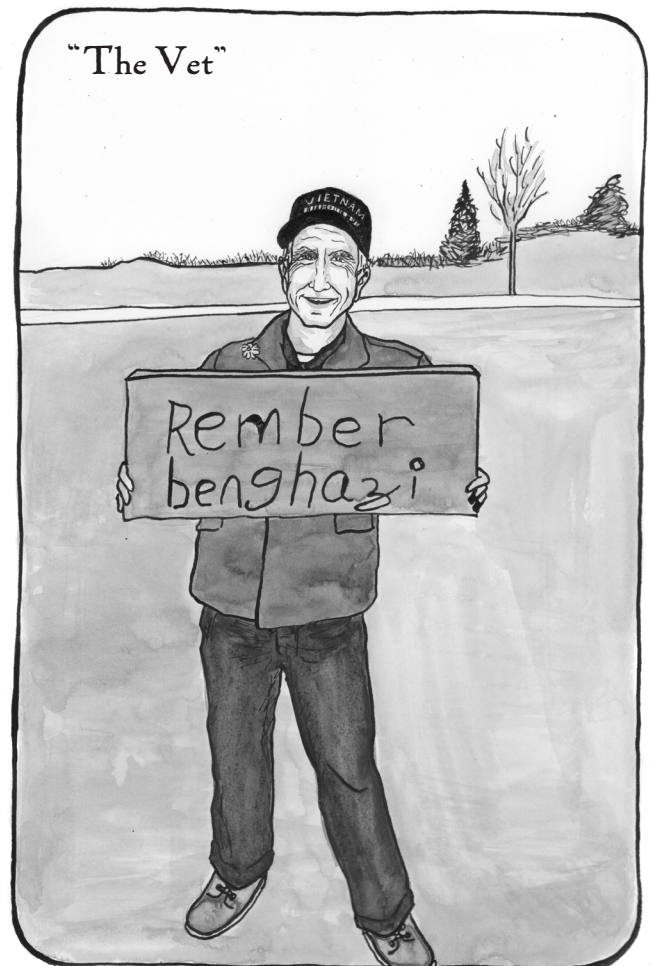 “The Vet”
VIETNAM
Rember
benghazi